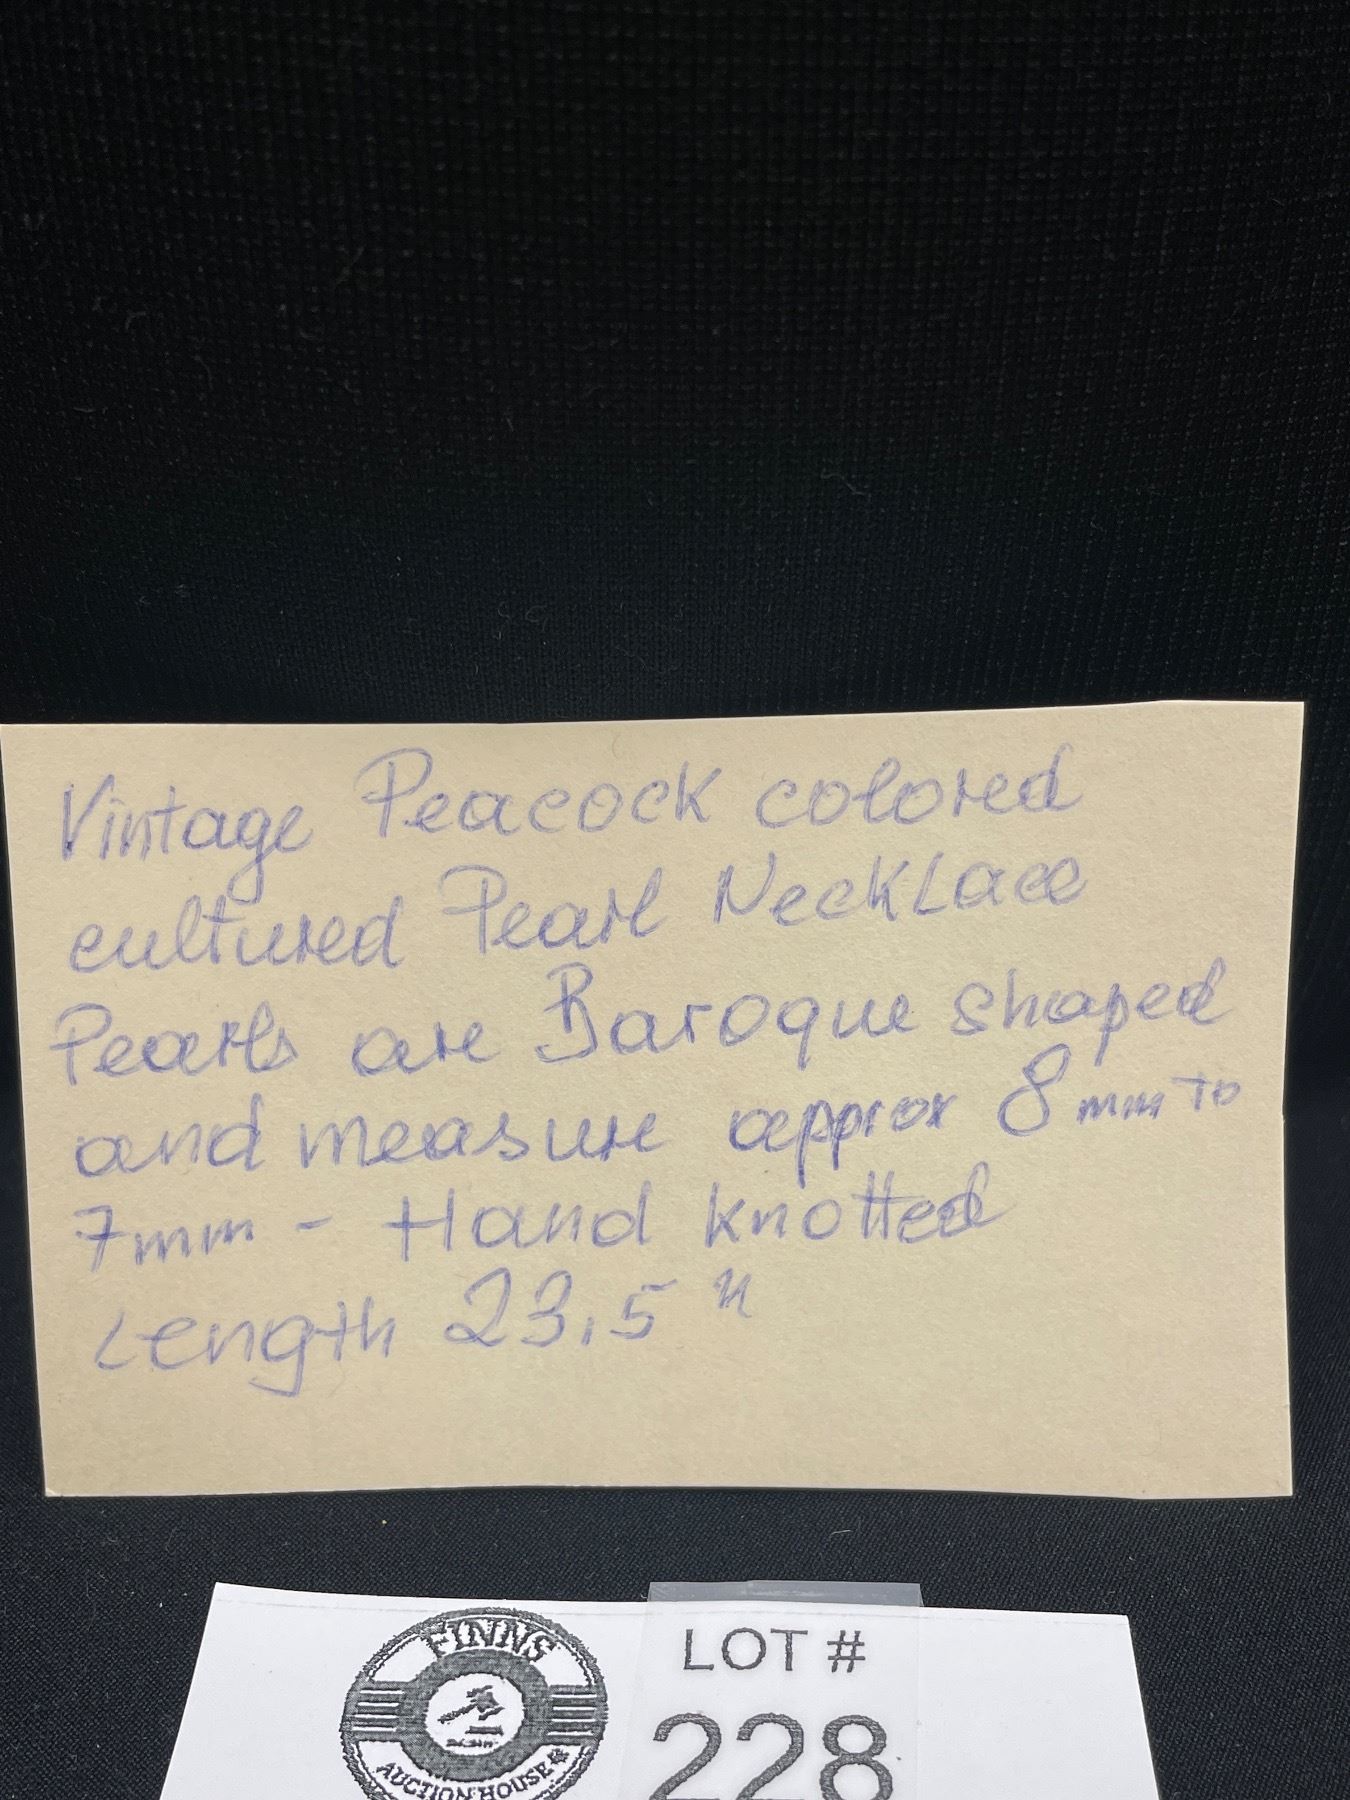 Vintage Peacock colored
cultured Pearl Necklace
Pearls are Baroque shaped
and measure approx 8mm to
7mm - Hand knotted
Length 23,5"
FINNS
AUCTION HOUSE
LOT #
228